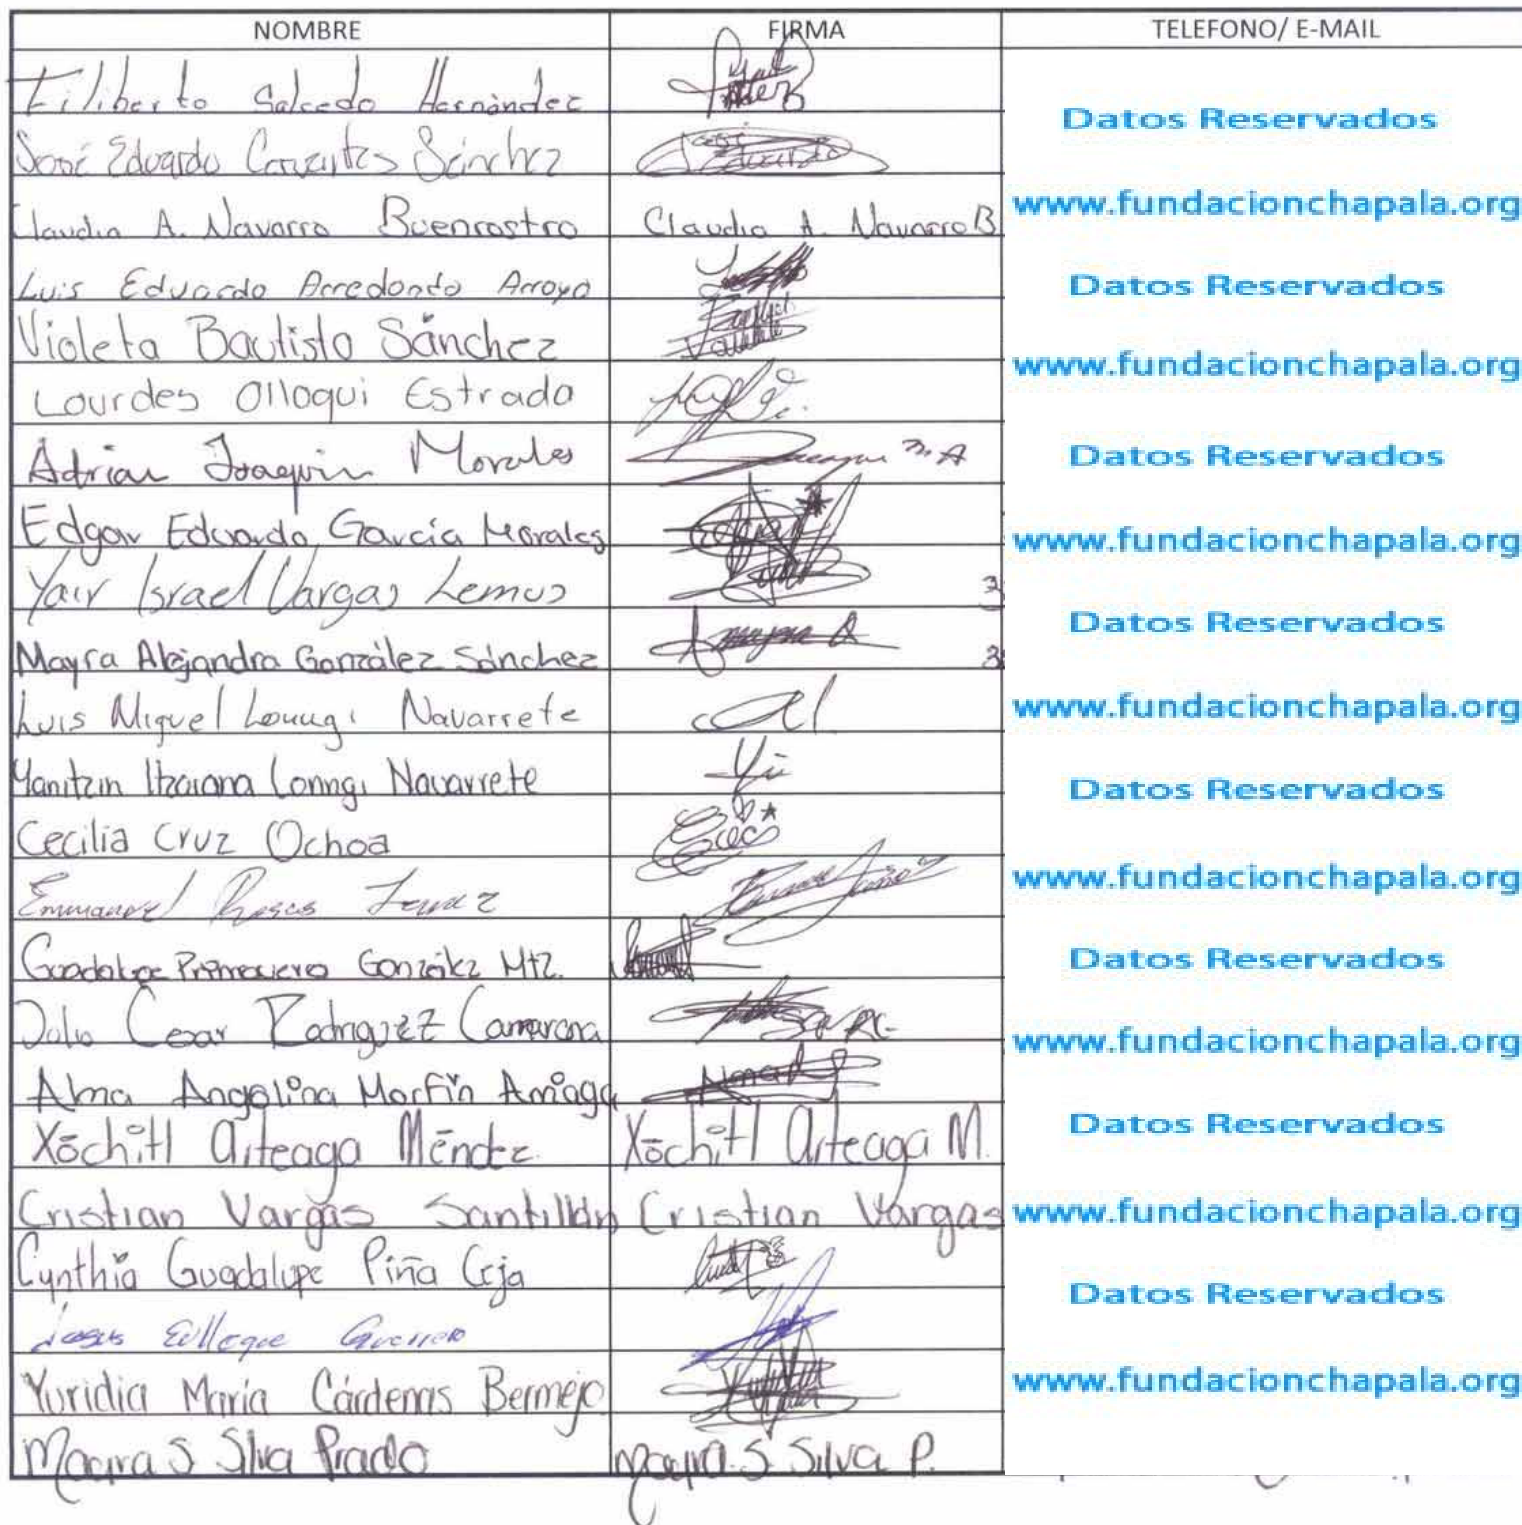 NOMBRE FIRMA TELEFONO/ E-MAIL
Filiberto Salcedo Hernández
Datos Reservados
José Eduardo Cervantes Sánchez José Eduardo
Claudia A. Navarro Buenrostro Claudia A. Navarro B.
www.fundacionchapala.org
Luis Eduardo Arredondo Arroyo
Datos Reservados
Violeta Bautista Sánchez
www.fundacionchapala.org
Lourdes Olloqui Estrada
Adrian Joaquin Morales
Datos Reservados
Edgar Eduardo García Morales
www.fundacionchapala.org
Yair Israel Vargas Lemus
Datos Reservados
Mayra Alejandra González Sánchez
Luis Miguel Navarrete
www.fundacionchapala.org
Navarrete
Datos Reservados
Cecilia Cruz Ochoa
Emmanuel Rosas
www.fundacionchapala.org
Guadalupe Primavera González Mtz.
Datos Reservados
Julio Cesar Rodriguez Camarena
www.fundacionchapala.org
Alma Angelina Morfín Arriaga
Xóchitl Arteaga Méndez Xóchitl Arteaga M.
Datos Reservados
Cristian Vargas Santillán Cristian Vargas
www.fundacionchapala.org
Cynthia Guadalupe Piña Ceja
Datos Reservados
Jesus Guerrero
Yuridia María Cárdenas Bermejo
www.fundacionchapala.org
Mayra S Silva Prado Mayra S Silva P.